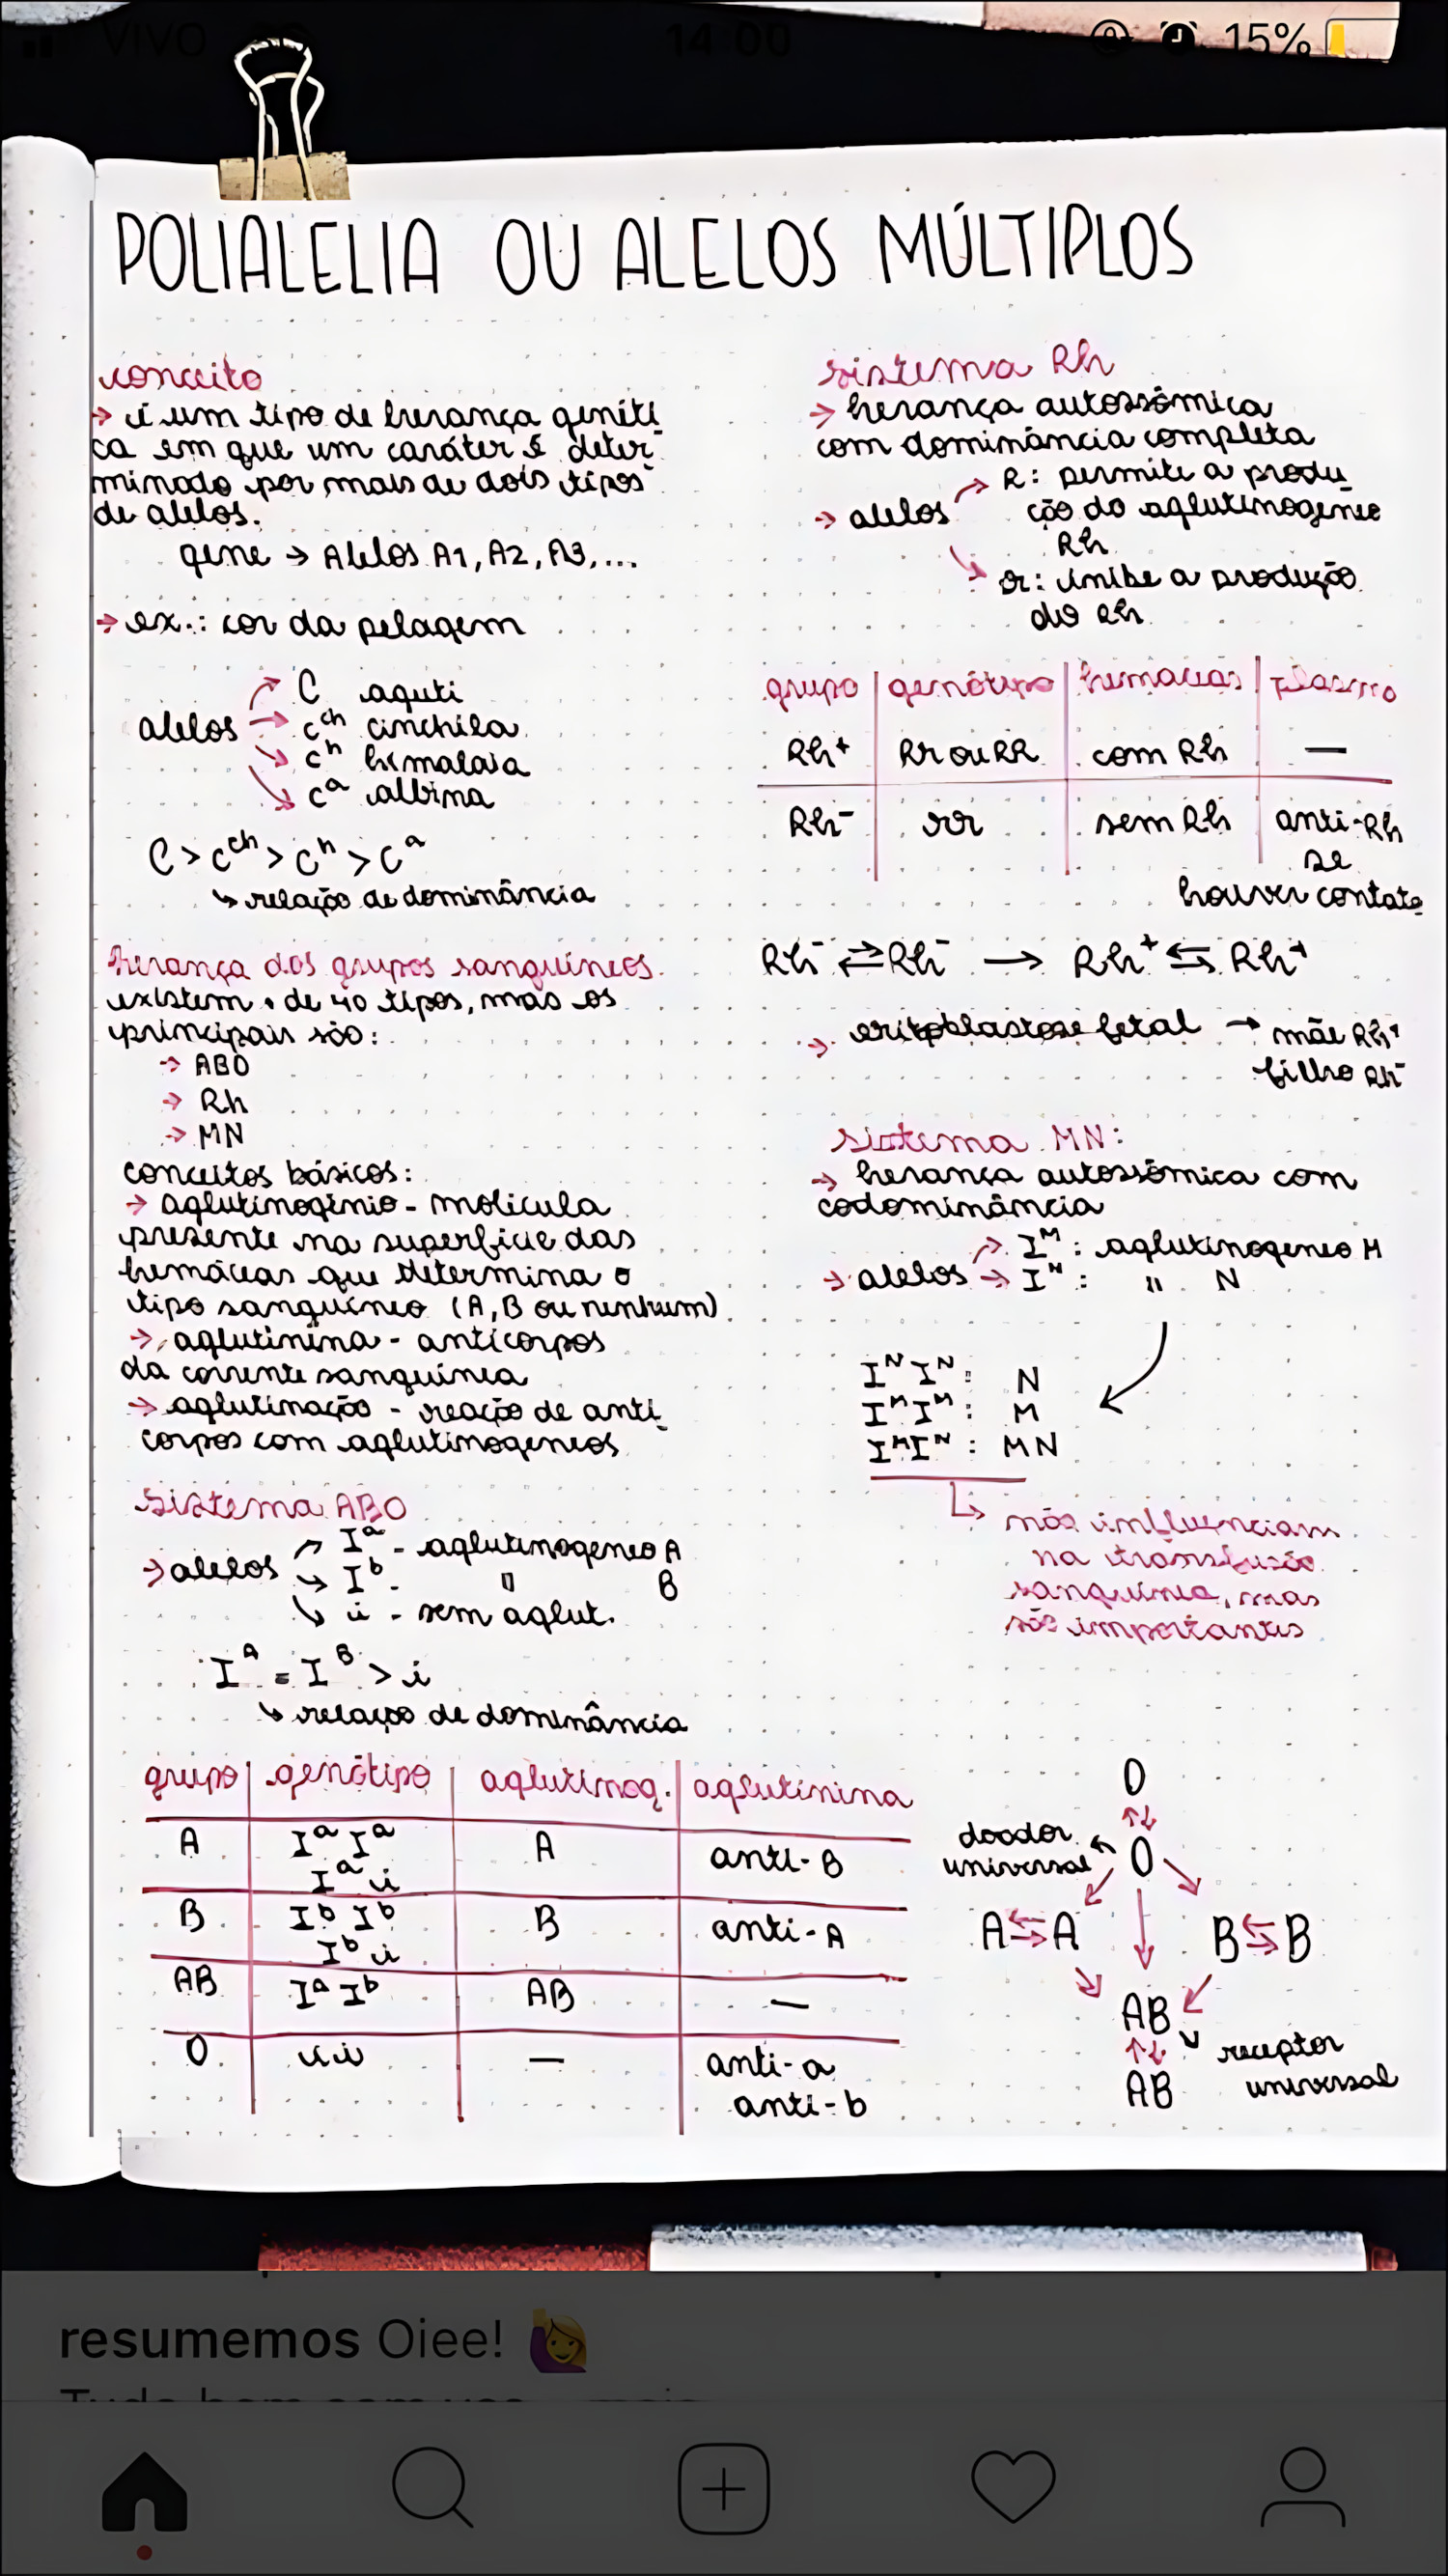 VIVO 14:00 15%
POLIALELIA OU ALELOS MÚLTIPLOS
conceito
→ é um tipo de herança genéti
ca em que um caráter é deter
minado por mais de dois tipos
de alelos.
gene → Alelos A1, A2, A3,...
→ ex.: cor da pelagem
alelos
C aguti
cᶜʰ cinchila
cʰ himalaia
cᵃ albina
C > cᶜʰ > cʰ > cᵃ
↳ relação de dominância
herança dos grupos sanguíneos
existem + de 40 tipos, mas os
principais são:
→ ABO
→ Rh
→ MN
conceitos básicos:
→ aglutinogênio - molécula
presente na superfície das
hemáceas que determina o
tipo sanguíneo (A, B ou nenhum)
→ aglutinina - anticorpos
da corrente sanguínea
→ aglutinação - reação de anti
corpos com aglutinogeneos
sistema ABO
→ alelos
Iᵃ - aglutinogeneo A
Iᵇ - " B
i - sem aglut.
Iᴬ = Iᴮ > i
↳ relação de dominância
grupo genótipo aglutinog. aglutinina
A IᵃIᵃ A anti-B
Iᵃi
B IᵇIᵇ B anti-A
Iᵇi
AB IᵃIᵇ AB —
O ii — anti-a
anti-b
sistema Rh
→ herança autossômica
com dominância completa
→ alelos
R: permite a produ
ção do aglutinogeneo
Rh
r: inibe a produção
do Rh
grupo genótipo hemáceas plasma
Rh⁺ Rr ou RR com Rh —
Rh⁻ rr sem Rh anti-Rh
se
houver contato
Rh⁻ ⇄ Rh⁻ → Rh⁺ ⇆ Rh⁺
→ eritoblastose fetal → mãe Rh⁺
filho Rh⁻
sistema MN:
→ herança autossômica com
codominância
→ alelos
Iᴹ: aglutinogeneo M
Iᴺ: " N
IᴺIᴺ: N
IᴹIᴹ: M
IᴹIᴺ: MN
↳ não influenciam
na transfusão
sanguínea, mas
são importantes
O
⇅
doador universal ← O
A ⇆ A B ⇆ B
AB
⇅ receptor
AB universal
resumemos Oiee! 🙋